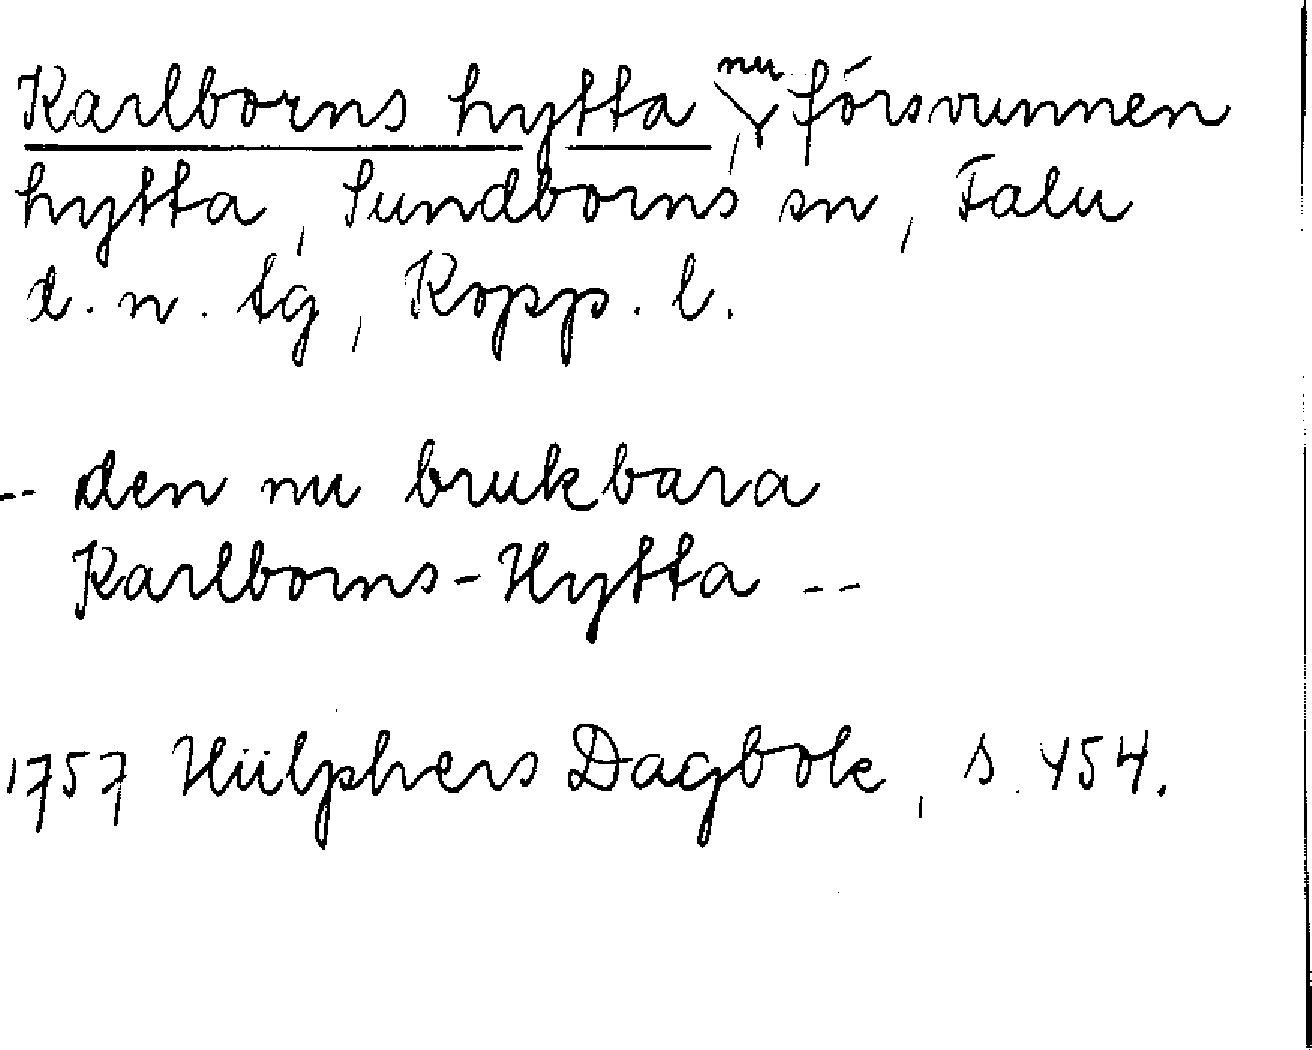 Karlborns hytta, nu försvunnen
hytta, Sundborns sn, Falu
d. n. tg, Kopp. l.
-- den nu brukbara
Karlborns-Hytta --
1757 Hülphers Dagbok, s. 454.